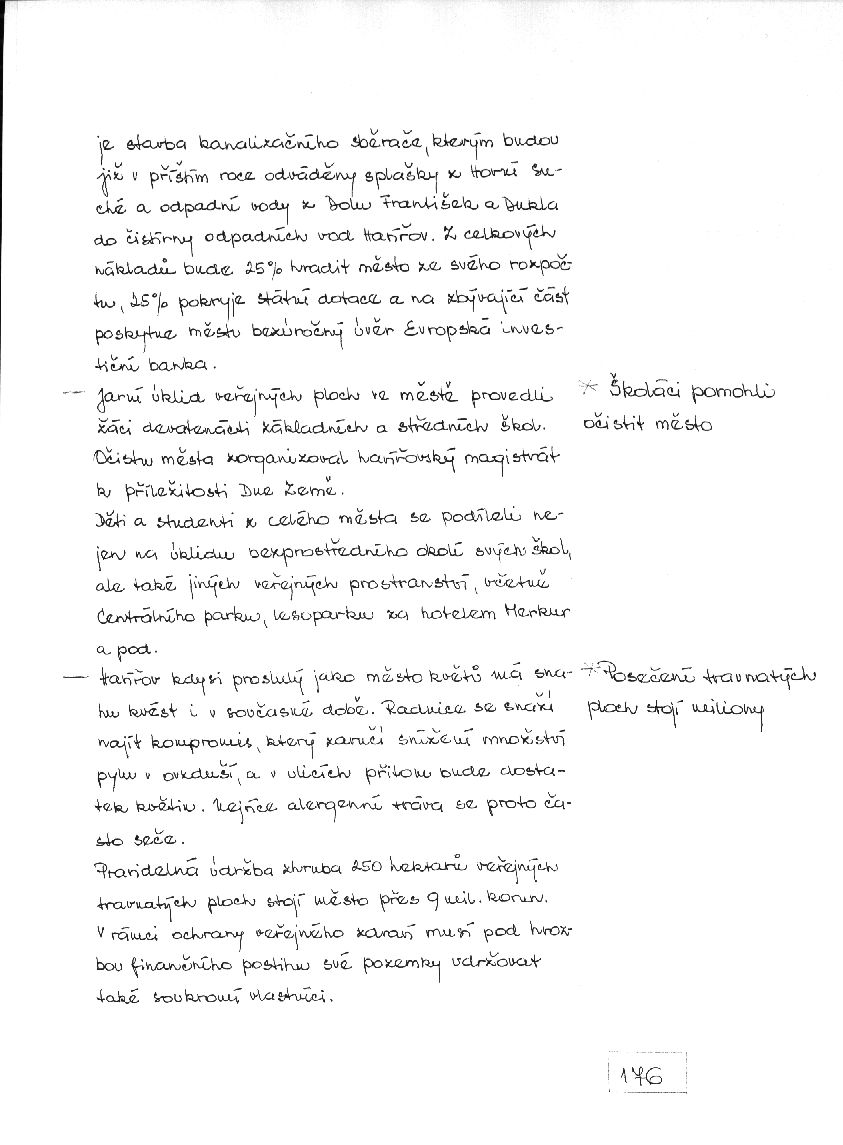 je stavba kanalizačního sběrače, kterým budou
již v příštím roce odváděny splašky z Horní Su-
ché a odpadní vody z Dolu František a Dukla
do čistírny odpadních vod Havířov. Z celkových
nákladů bude 25% hradit město ze svého rozpoč-
tu, 25% pokryje státní dotace a na zbývající část
poskytne městu bezúročný úvěr Evropská inves-
tiční banka.
— Jarní úklid veřejných ploch ve městě provedli
žáci devatenácti základních a středních škol.
Očistu města zorganizoval havířovský magistrát
k příležitosti Dne Země.
Děti a studenti z celého města se podíleli ne-
jen na úklidu bezprostředního okolí svých škol,
ale také jiných veřejných prostranství, včetně
Centrálního parku, lesoparku za hotelem Merkur
a pod.
— Havířov kdysi proslulý jako město květů má sna-
hu kvést i v současné době. Radnice se snaží
najít kompromis, který zaručí snížení množství
pylu v ovzduší, a v ulicích přitom bude dosta-
tek květin. Nejvíce alergenní tráva se proto ča-
sto seče.
Pravidelná údržba zhruba 250 hektarů veřejných
travnatých ploch stojí město přes 9 mil. korun.
V rámci ochrany veřejného zdraví musí pod hroz-
bou finančního postihu své pozemky udržovat
také soukromí vlastníci.
* Školáci pomohli
očistit město
* Posečení travnatých
ploch stojí miliony
176